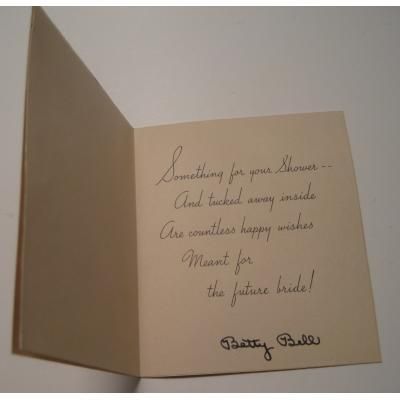 Something for your Shower--
And tucked away inside
Are countless happy wishes
Meant for
the future bride!
Betty Bell